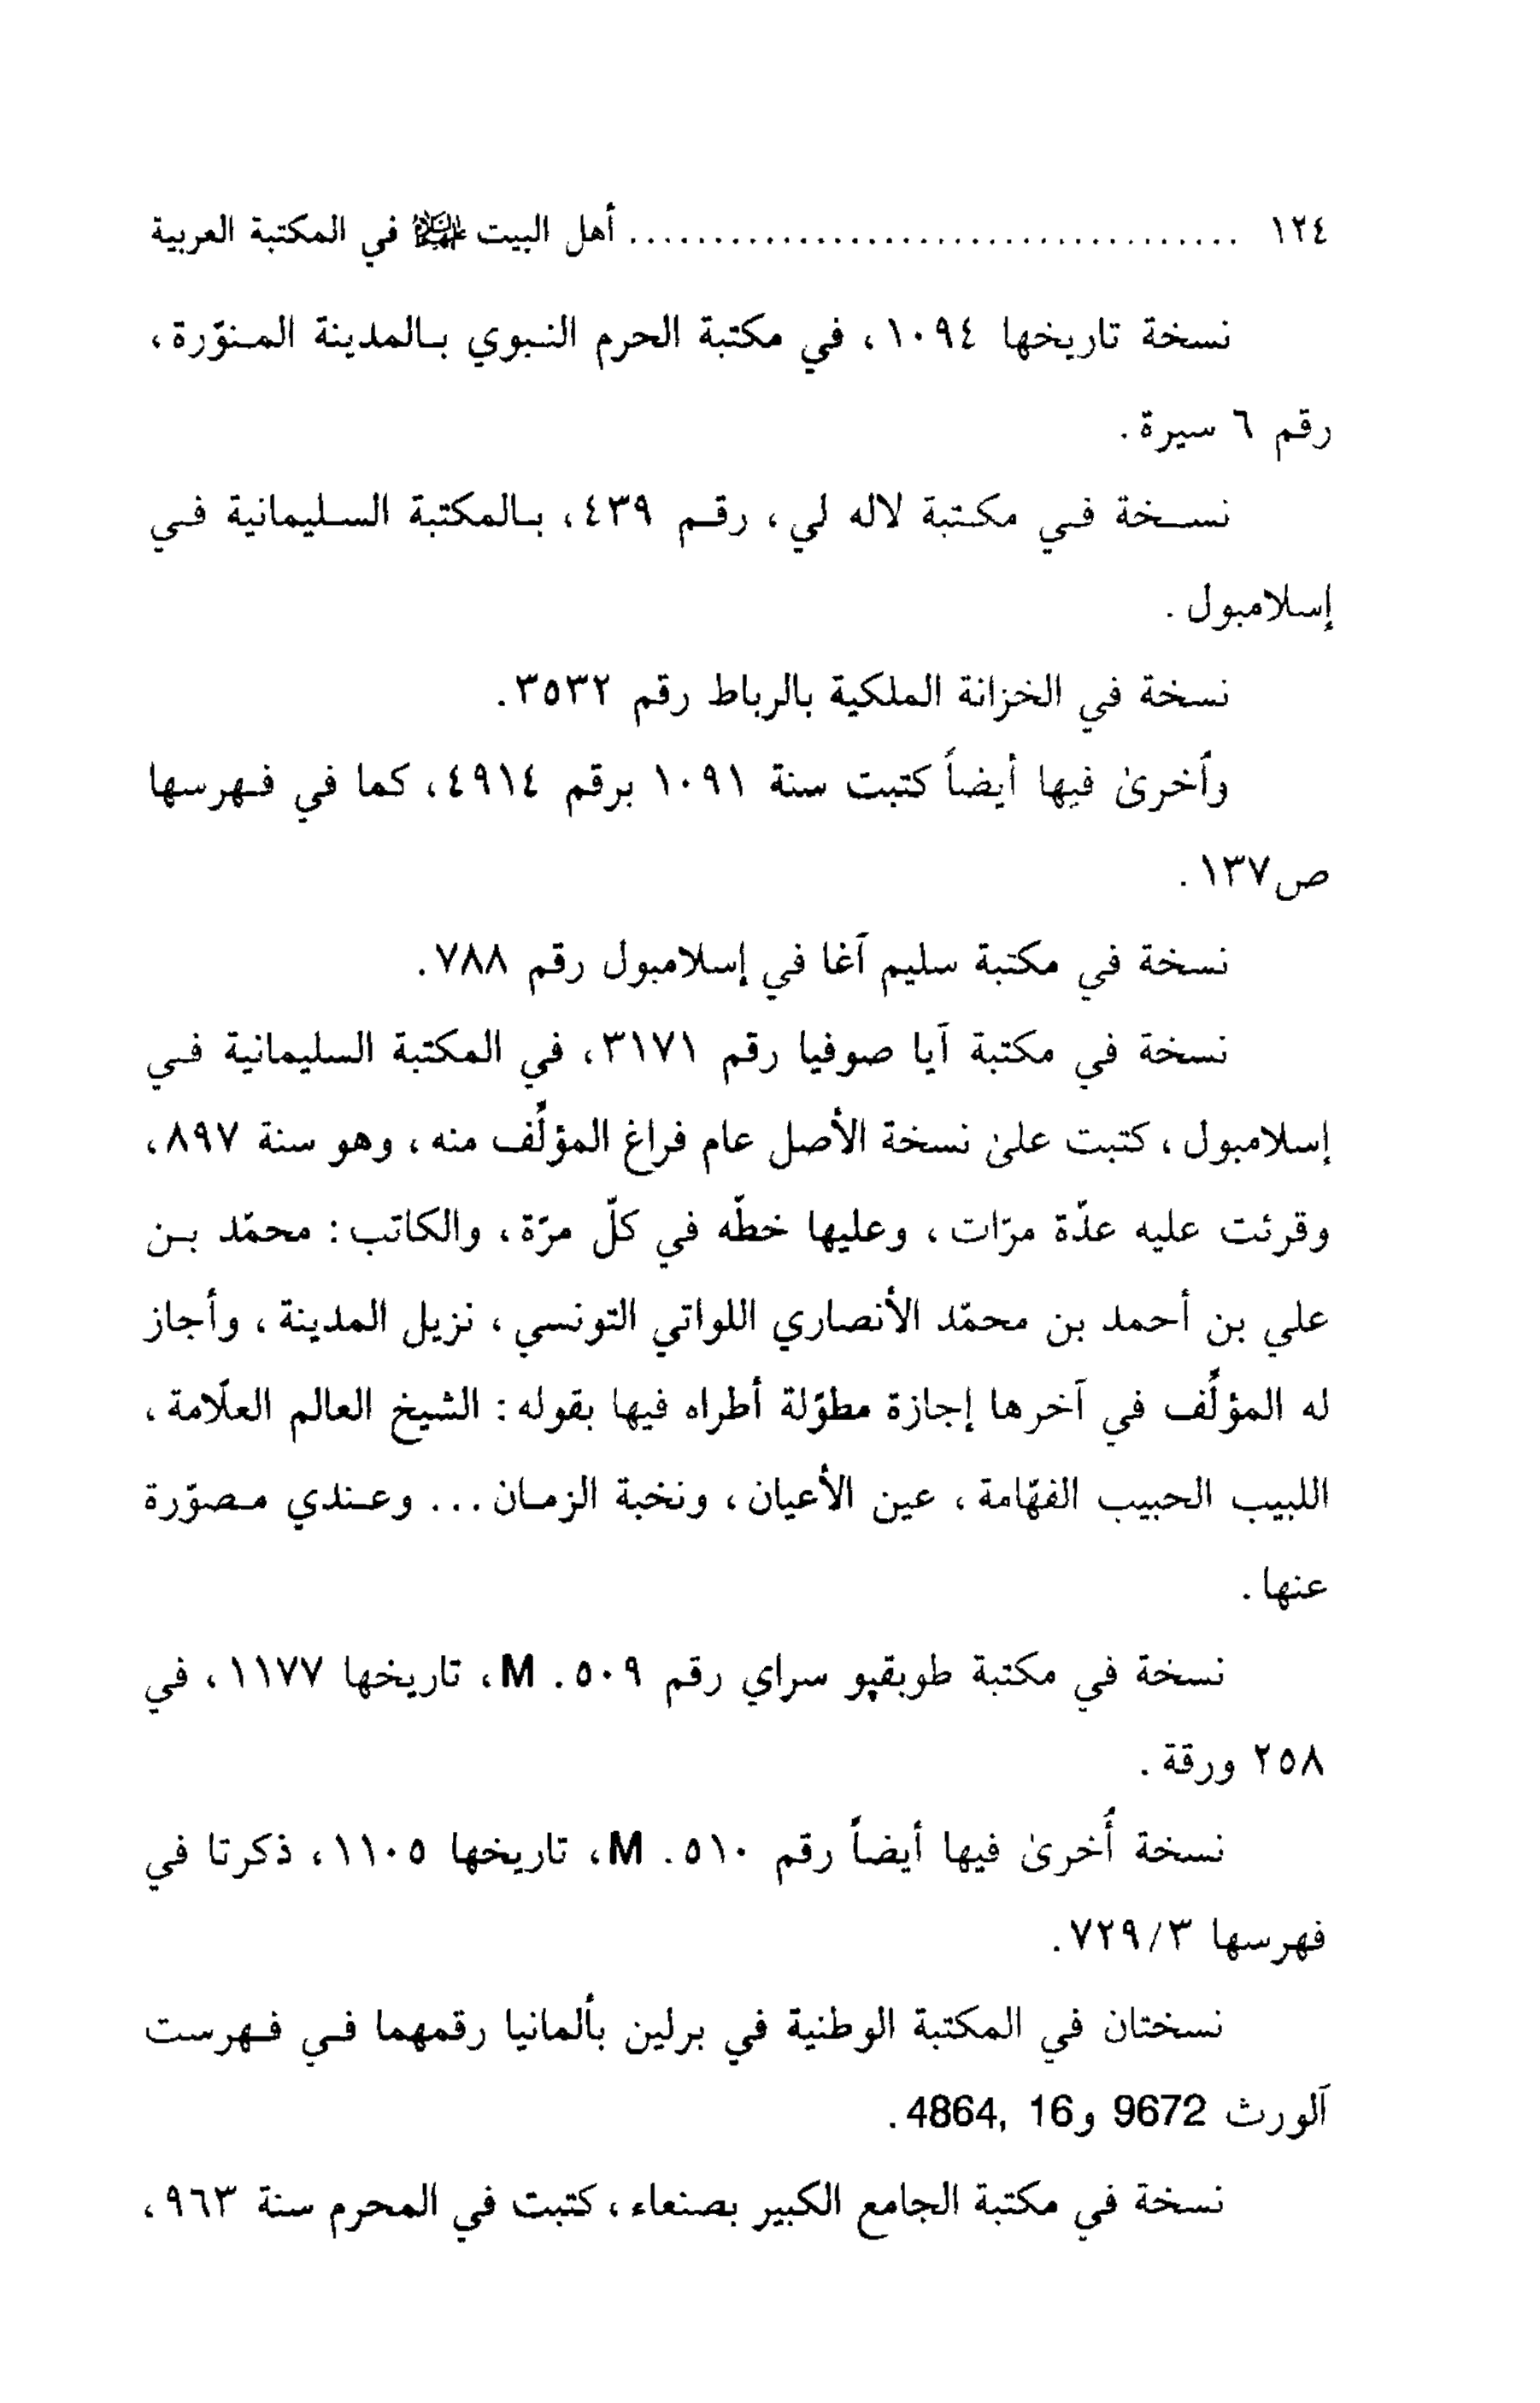 ١٢٤ ..................................... أهل البيت عليهم السلام في المكتبة العربية
نسخة تاريخها ١٠٩٤، في مكتبة الحرم النبوي بالمدينة المنوّرة،
رقم ٦ سيرة.
نسخة في مكتبة لاله لي، رقم ٤٣٩، بالمكتبة السليمانية في
إسلامبول.
نسخة في الخزانة الملكية بالرباط رقم ٣٥٣٢.
وأخرىٰ فيها أيضاً كتبت سنة ١٠٩١ برقم ٤٩١٤، كما في فهرسها
ص١٣٧.
نسخة في مكتبة سليم آغا في إسلامبول رقم ٧٨٨.
نسخة في مكتبة آيا صوفيا رقم ٣١٧١، في المكتبة السليمانية في
إسلامبول، كتبت علىٰ نسخة الأصل عام فراغ المؤلِّف منه، وهو سنة ٨٩٧،
وقرئت عليه عدّة مرّات، وعليها خطّه في كلّ مرّة، والكاتب: محمّد بن
علي بن أحمد بن محمّد الأنصاري اللواتي التونسي، نزيل المدينة، وأجاز
له المؤلِّف في آخرها إجازة مطوّلة أطراه فيها بقوله: الشيخ العالم العلّامة،
اللبيب الحبيب الفهّامة، عين الأعيان، ونخبة الزمان... وعندي مصوّرة
عنها.
نسخة في مكتبة طوبقپو سراي رقم ٥٠٩ .M، تاريخها ١١٧٧، في
٢٥٨ ورقة.
نسخة أُخرىٰ فيها أيضاً رقم ٥١٠ .M، تاريخها ١١٠٥، ذكرتا في
فهرسها ٣/٧٢٩.
نسختان في المكتبة الوطنية في برلين بألمانيا رقمهما في فهرست
آلورث 9672 و16 ,4864.
نسخة في مكتبة الجامع الكبير بصنعاء، كتبت في المحرم سنة ٩٦٣،